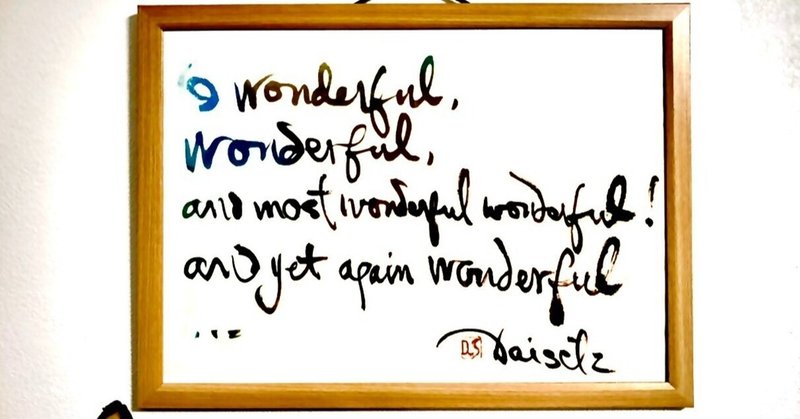 O wonderful,
wonderful,
and most wonderful wonderful!
and yet again wonderful
...
D.S. Daisetz